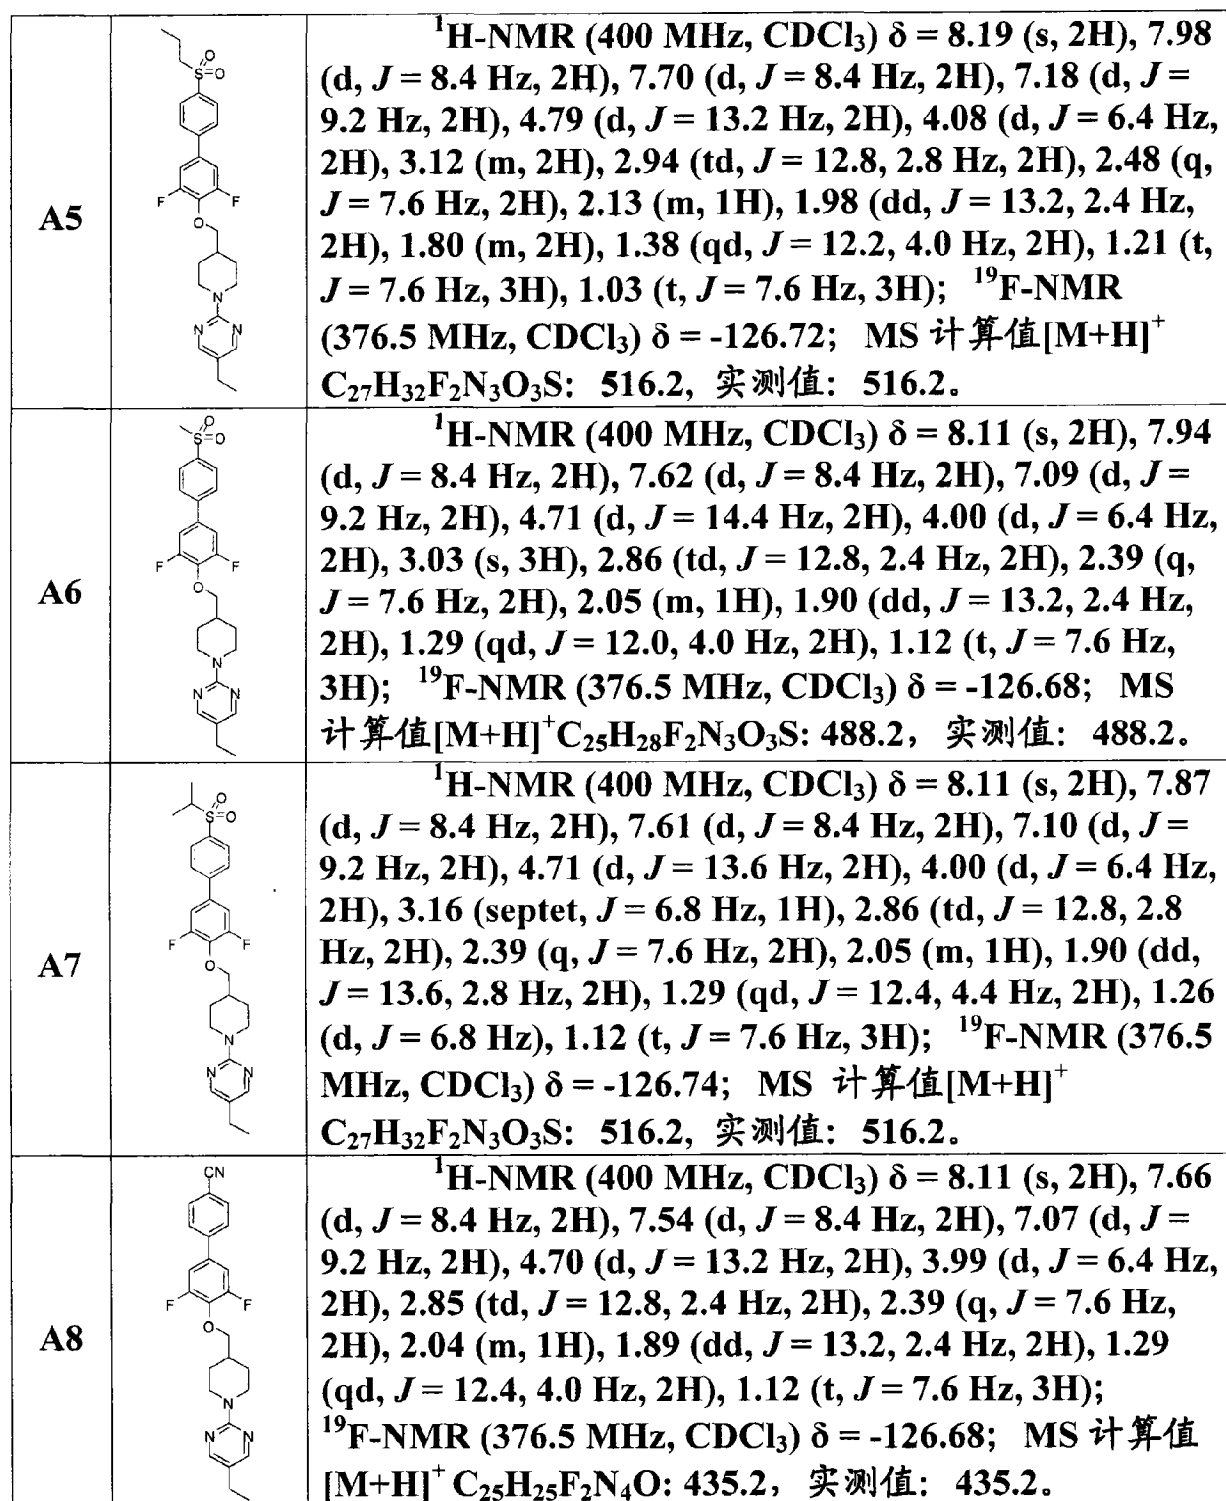 A5
¹H-NMR (400 MHz, CDCl₃) δ = 8.19 (s, 2H), 7.98
(d, J = 8.4 Hz, 2H), 7.70 (d, J = 8.4 Hz, 2H), 7.18 (d, J =
9.2 Hz, 2H), 4.79 (d, J = 13.2 Hz, 2H), 4.08 (d, J = 6.4 Hz,
2H), 3.12 (m, 2H), 2.94 (td, J = 12.8, 2.8 Hz, 2H), 2.48 (q,
J = 7.6 Hz, 2H), 2.13 (m, 1H), 1.98 (dd, J = 13.2, 2.4 Hz,
2H), 1.80 (m, 2H), 1.38 (qd, J = 12.2, 4.0 Hz, 2H), 1.21 (t,
J = 7.6 Hz, 3H), 1.03 (t, J = 7.6 Hz, 3H); ¹⁹F-NMR
(376.5 MHz, CDCl₃) δ = -126.72; MS 计算值[M+H]⁺
C₂₇H₃₂F₂N₃O₃S: 516.2, 实测值: 516.2。
O
S=O
F F
O
N
N N
A6
¹H-NMR (400 MHz, CDCl₃) δ = 8.11 (s, 2H), 7.94
(d, J = 8.4 Hz, 2H), 7.62 (d, J = 8.4 Hz, 2H), 7.09 (d, J =
9.2 Hz, 2H), 4.71 (d, J = 14.4 Hz, 2H), 4.00 (d, J = 6.4 Hz,
2H), 3.03 (s, 3H), 2.86 (td, J = 12.8, 2.4 Hz, 2H), 2.39 (q,
J = 7.6 Hz, 2H), 2.05 (m, 1H), 1.90 (dd, J = 13.2, 2.4 Hz,
2H), 1.29 (qd, J = 12.0, 4.0 Hz, 2H), 1.12 (t, J = 7.6 Hz,
3H); ¹⁹F-NMR (376.5 MHz, CDCl₃) δ = -126.68; MS
计算值[M+H]⁺C₂₅H₂₈F₂N₃O₃S: 488.2, 实测值: 488.2。
O
S=O
F F
O
N
N N
A7
¹H-NMR (400 MHz, CDCl₃) δ = 8.11 (s, 2H), 7.87
(d, J = 8.4 Hz, 2H), 7.61 (d, J = 8.4 Hz, 2H), 7.10 (d, J =
9.2 Hz, 2H), 4.71 (d, J = 13.6 Hz, 2H), 4.00 (d, J = 6.4 Hz,
2H), 3.16 (septet, J = 6.8 Hz, 1H), 2.86 (td, J = 12.8, 2.8
Hz, 2H), 2.39 (q, J = 7.6 Hz, 2H), 2.05 (m, 1H), 1.90 (dd,
J = 13.6, 2.8 Hz, 2H), 1.29 (qd, J = 12.4, 4.4 Hz, 2H), 1.26
(d, J = 6.8 Hz), 1.12 (t, J = 7.6 Hz, 3H); ¹⁹F-NMR (376.5
MHz, CDCl₃) δ = -126.74; MS 计算值[M+H]⁺
C₂₇H₃₂F₂N₃O₃S: 516.2, 实测值: 516.2。
O
S=O
F F
O
N
N N
A8
¹H-NMR (400 MHz, CDCl₃) δ = 8.11 (s, 2H), 7.66
(d, J = 8.4 Hz, 2H), 7.54 (d, J = 8.4 Hz, 2H), 7.07 (d, J =
9.2 Hz, 2H), 4.70 (d, J = 13.2 Hz, 2H), 3.99 (d, J = 6.4 Hz,
2H), 2.85 (td, J = 12.8, 2.4 Hz, 2H), 2.39 (q, J = 7.6 Hz,
2H), 2.04 (m, 1H), 1.89 (dd, J = 13.2, 2.4 Hz, 2H), 1.29
(qd, J = 12.4, 4.0 Hz, 2H), 1.12 (t, J = 7.6 Hz, 3H);
¹⁹F-NMR (376.5 MHz, CDCl₃) δ = -126.68; MS 计算值
[M+H]⁺ C₂₅H₂₅F₂N₄O: 435.2, 实测值: 435.2。
CN
F F
O
N
N N